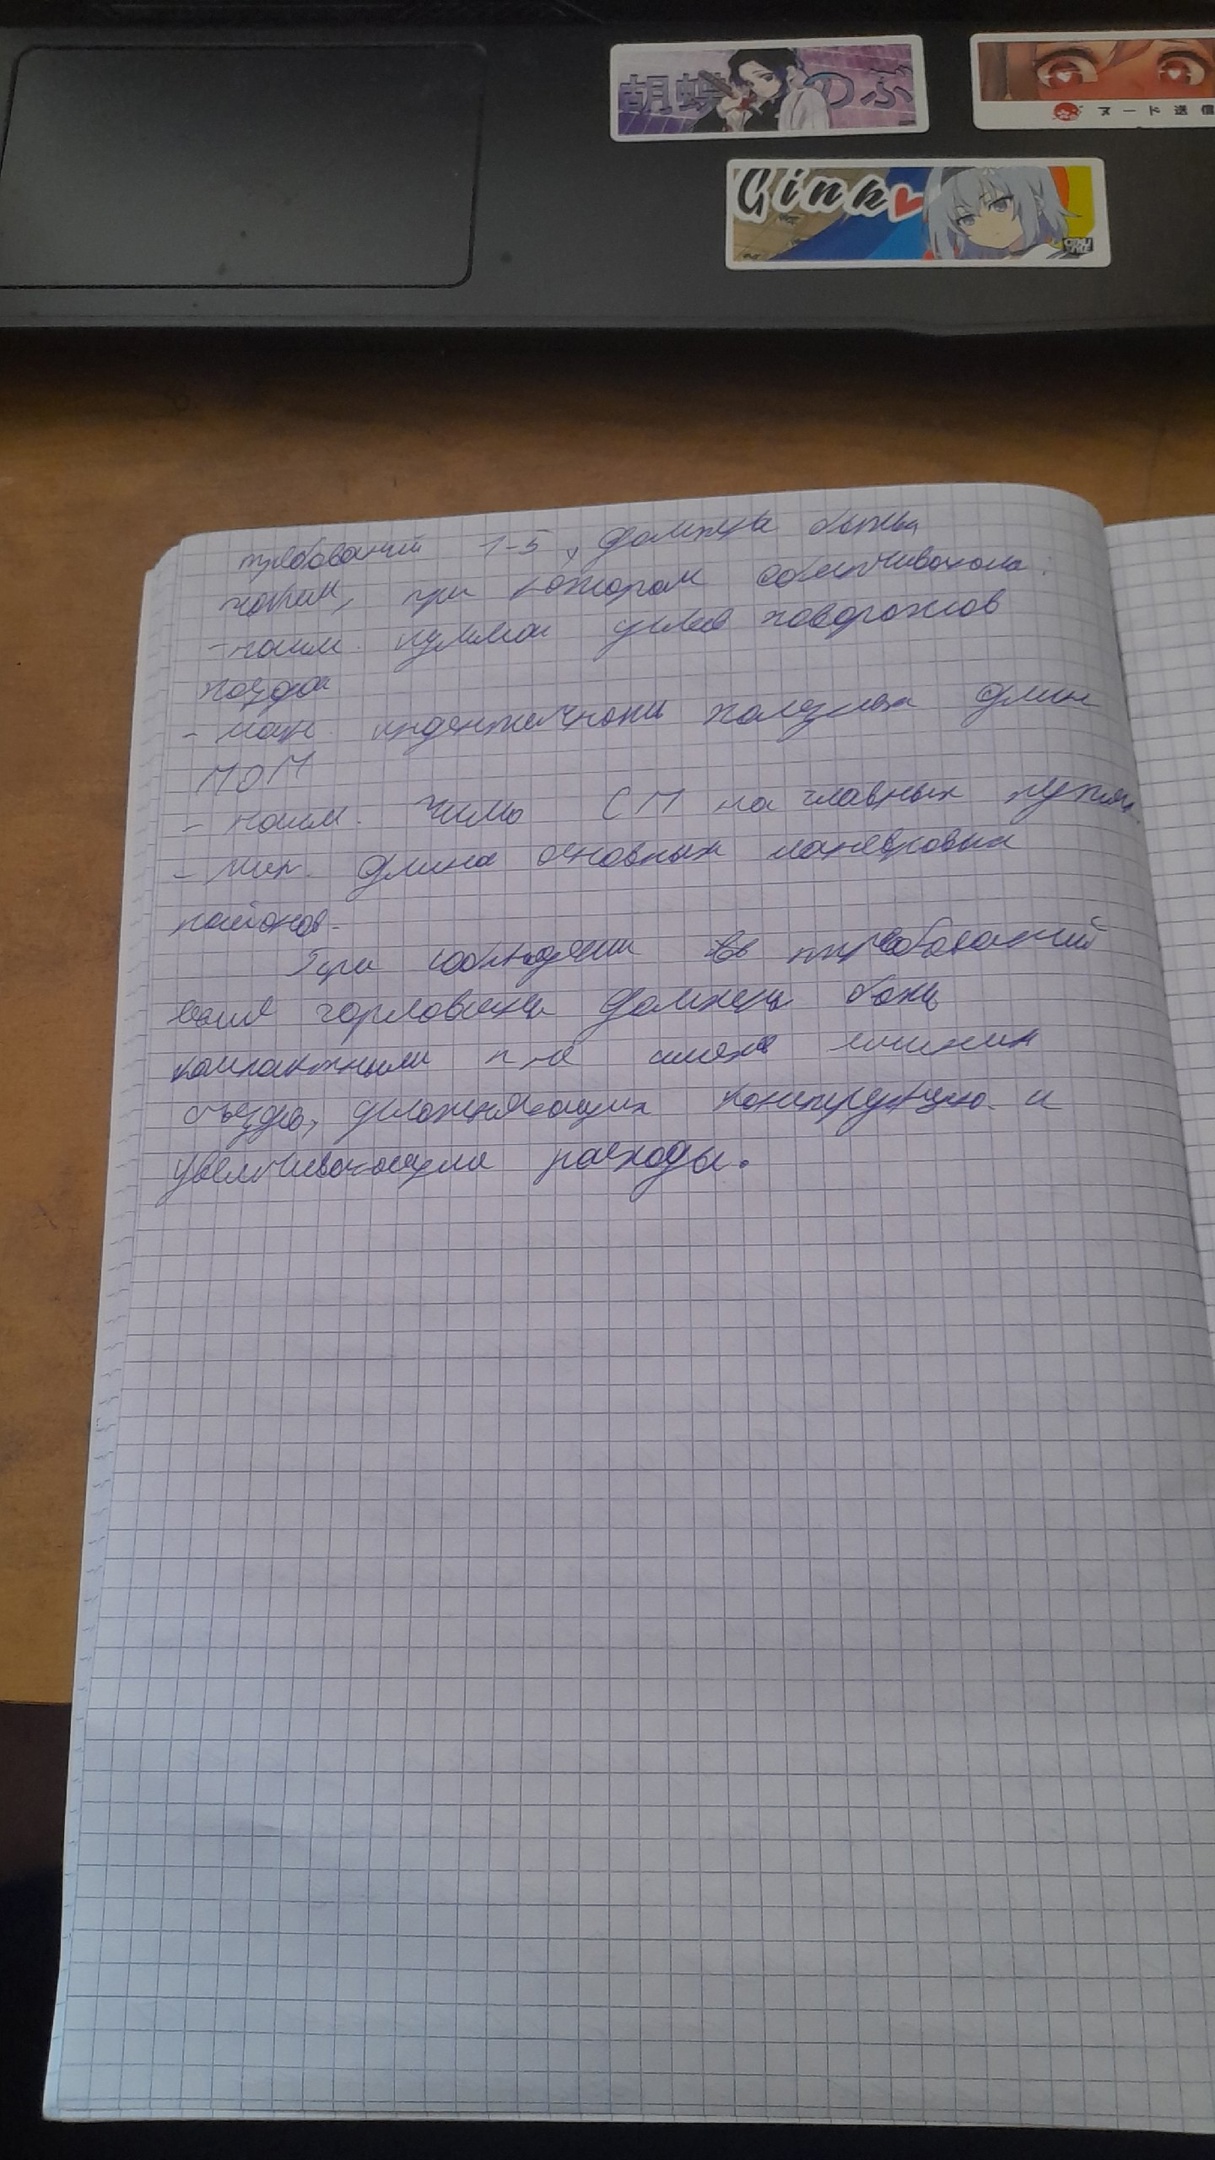 胡蝶 のぶ
ヌード送信
Gink
требований 1-5, должны быть
таким, при котором обеспечивается.
- наим. сумма углов поворотов
поезда
- макс. идентичность полезных длин
ПОП
- наим. число СП на главных путях
- мин. длина основных маневровых
районов.
При соблюдении требований
горловины должны быть
компактными и не иметь лишних
съездов, усложняющих конструкцию и
увеличивающих расходы.